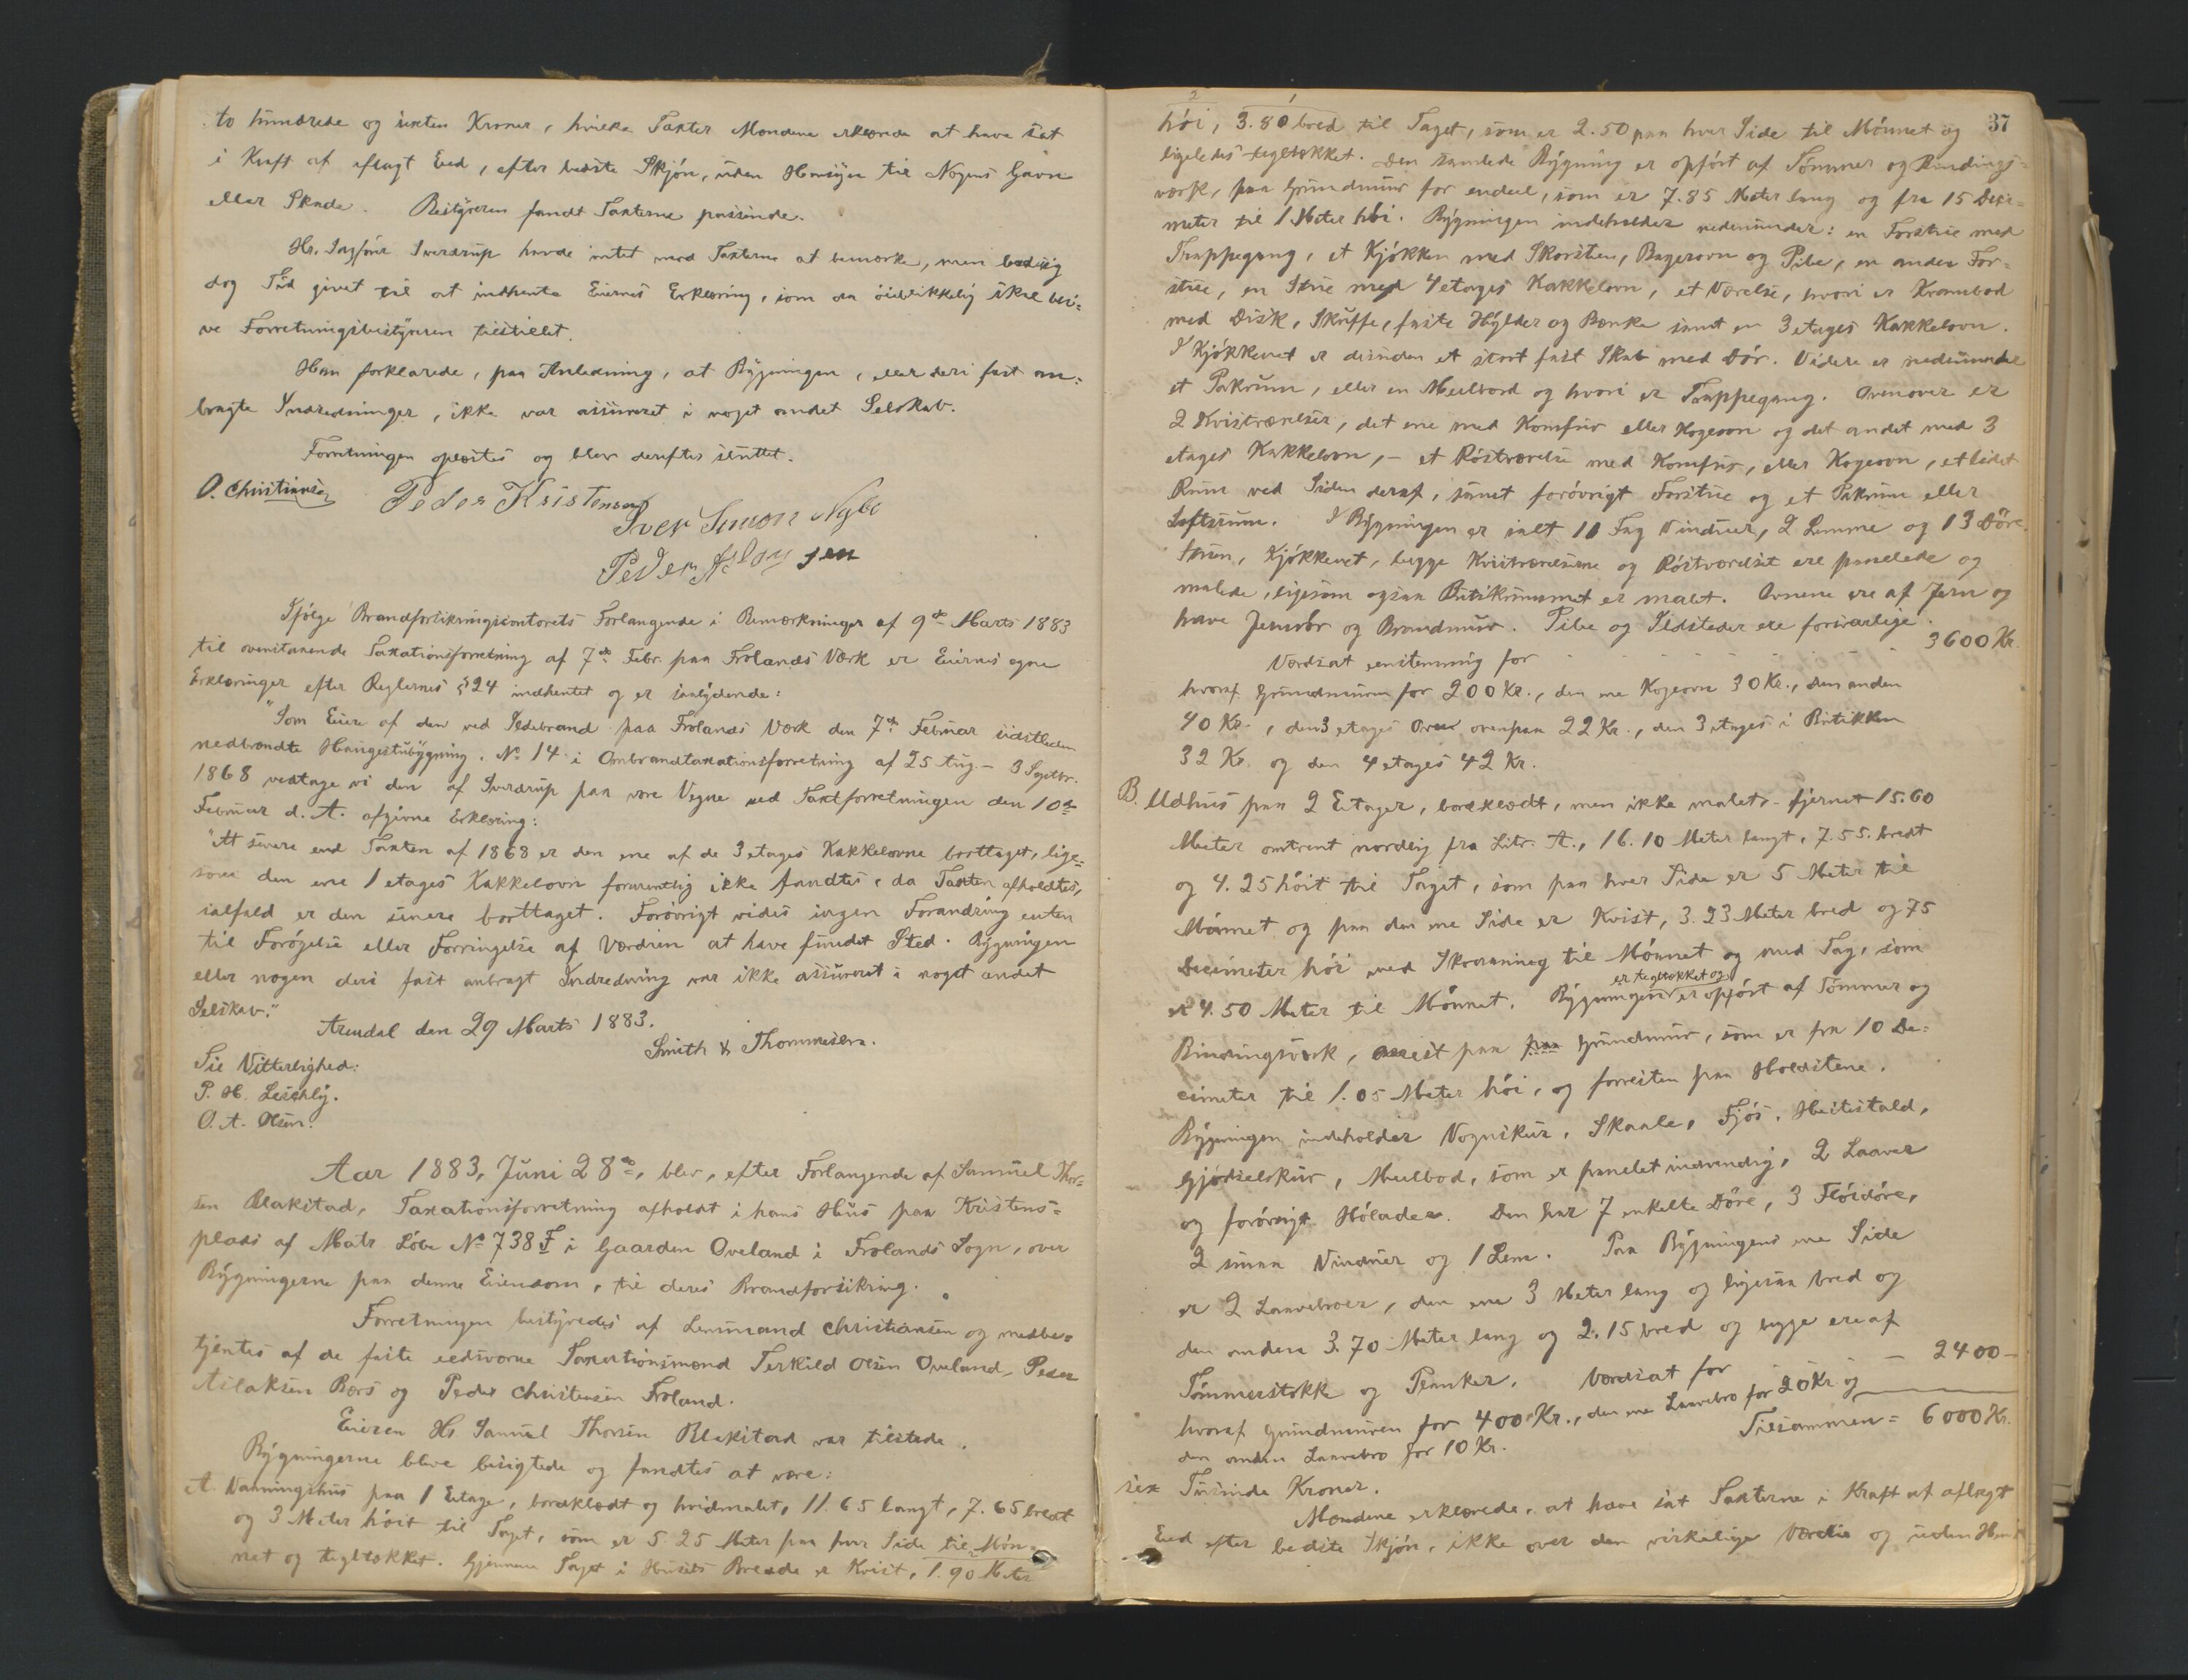 to hundrede og sexten Kroner, hvilke Taxter Mændene erklærede at have sat
i Kraft af aflagt Eed, efter bedste Skjøn, uden Hensyn til Nogens Gavn
eller Skade. Bestyreren fandt Taxterne passende.
Hr. Ingføer Sverdrup havde intet mod Taxterne at bemærke, men bad sig
dog Tid givet til at indhente Eiernes Erklæring, som da øieblikkelig skal bli-
ve Forretningsbestyreren tilstillet.
Han forklarede, paa Anledning, at Bygningen, eller deri fast an-
bragte Indredninger, ikke var assureret i noget andet Selskab.
Forretningen oplæstes og blev derefter sluttet.
O. Christiansen Peder Kristensen
Iver Simon Nybo
Peder Aslaksen
Ifølge Brandforsikringscontorets Forlangende i Bemærkninger af 9de Marts 1883
til ovenstaaende Taxationsforretning af 7de Febr. paa Frolands Værk er Eiernes egne
Erklæringer efter Reglernes §24 indhentet og er saalydende:
"Som Eiere af den ved Ildebrand paa Frolands Værk den 7de Februar sidstleden
nedbrændte Hængestubygning. No 14 i Ombrandtaxationsforretning af 25 Aug. - 3 Septbr.
1868 vedtage vi den af Sverdrup paa vore Vegne ved Taxtforretningen den 10de
Februar d. A. afgivne Erklæring:
"At senere end Taxten af 1868 er den ene af de 3 etages Kakkelovne borttaget, lige-
som den ene 1 etages Kakkelovn formentlig ikke fandtes, da Taxten afholdtes,
ialfald er den senere borttaget. Forøvrigt vides ingen Forandring enten
til Forøgelse eller Forringelse af Værdien at have fundet Sted. Bygningen
eller nogen deri fast anbragt Indredning var ikke assureret i noget andet
Selskab."
Arendal den 29 Marts 1883.
Smith & Thommesen.
Til Vitterlighed:
P. H.
O. A. Olsen.
Aar 1883, Juni 28de, blev, efter Forlangende af Samuel Thor-
sen Blakstad, Taxationsforretning afholdt i hans Hus paa Kristens-
plads af Matr. Løbe No 738 F i Gaarden Oveland i Frolands Sogn, over
Bygningerne paa denne Eiendom, til deres Brandforsikring.
Forretningen bestyredes af Lensmand Christiansen og medbe-
tjentes af de faste eedsvorne Taxationsmænd Terkild Olsen Oveland, Peder
Aslaksen Børs og Peder Christensen Froland.
Eieren Hr Samuel Thorsen Blakstad var tilstede.
Bygningerne bleve besigtede og fandtes at være:
A. Vaaningshus paa 1 Etage, bordklædt og hvidmalet, 11.65 langt, 7.65 bredt
og 3 Meter høit til Taget, som er 5.25 Meter paa hver Side til Møn-
net og tegltækket. Gjennem Taget i Husets Bredde er Kvist, 1.90 Meter
37
2 1
høi, 3.80 bred til Taget, som er 2.50 paa hver Side til Mønnet og
ligeledes tegltækket. Den samlede Bygning er opført af Tømmer og Bindings-
værk, paa Grundmur for endeel, som er 7.85 Meter lang og fra 15 Deci-
meter til 1 Meter høi. Bygningen indeholder nedenunder: en Forstue med
Trappegang, et Kjøkken med Skorsten, Bagerovn og Pibe, en anden For-
stue, en Stue med 4 etages Kakkelovn, et Værelse, hvori er Krambod
med Disk, Skuffe, faste Hylder og Bænke samt en 3 etages Kakkelovn.
I Kjøkkenet er desuden et stort fast Skab med Dør. Videre er nedenunder
et Pakrum, eller en Meelbod og hvori er Trappegang. Ovenover er
2 Kvistværelser, det ene med Komfur eller Kogeovn og det andet med 3
etages Kakkelovn, - et Røstværelse med Komfur, eller Kogeovn, et lidet
Rum ved Siden deraf, samt forøvrigt Forstue og et Pakrum eller
Loftsrum. I Bygningen er ialt 10 Fag Vinduer, 2 Lemme og 13 Døre.
Stuen, Kjøkkenet, begge Kvistværelserne og Røstværelset ere panelede og
malede, ligesom ogsaa Butikrummet er malet. Ovnene ere af Jern og
have Jernrør og Brandmur. Pibe og Ildsteder ere forsvarlige.
Værdsat eenstemmig for - - - - - - 3600 Kr.
hvoraf Grundmuren for 200 Kr., den ene Kogeovn 30 Kr., den anden
40 Kr., den 3 etages Ovn ovenpaa 22 Kr., den 3 etages i Butikken
32 Kr. og den 4 etages 42 Kr.
B. Udhus paa 2 Etager, bordklædt, men ikke malet - fjernet 15.60
Meter omtrent nordlig fra Litr. A., 16.10 Meter langt, 7.55. bredt
og 4.25 høit til Taget, som paa hver Side er 5 Meter til
Mønnet og paa den ene Side er Kvist, 3.23 Meter bred og 75
Decimeter høi med Skraaning til Mønnet og med Tag, som
er 4.50 Meter til Mønnet. Bygningen er tegltækket og er opført af Tømmer og
Bindingsværk, mest paa paa Grundmur, som er fra 10 De-
cimeter til 1.05 Meter høi, og forresten paa Holdstene.
Bygningen indeholder Vognskur, Skaale, Fjøs, Hestestald,
Gjødselskur, Meelbod, som er panelet indvendig, 2 Laaver
og forøvrigt Hølader. Den har 7 enkelte Døre, 3 Fløidøre,
2 smaa Vinduer og 1 Lem. Paa Bygningens ene Side
er 2 Laavebroer, den ene 3 Meter lang og ligesaa bred og
den anden 3.70 Meter lang og 2.15 bred og begge ere af
Tømmerstokke og Planker. Værdsat for - 2400 -
hvoraf Grundmuren for 400 Kr., den ene Laavebro for 20 Kr og
den anden Laavebro for 10 Kr. Tilsammen = 6000 Kr.
sex Tusinde Kroner.
Mændene erklærede, at have sat Taxterne i Kraft af aflagt
Eed efter bedste Skjøn, ikke over den virkelige Værdie og uden